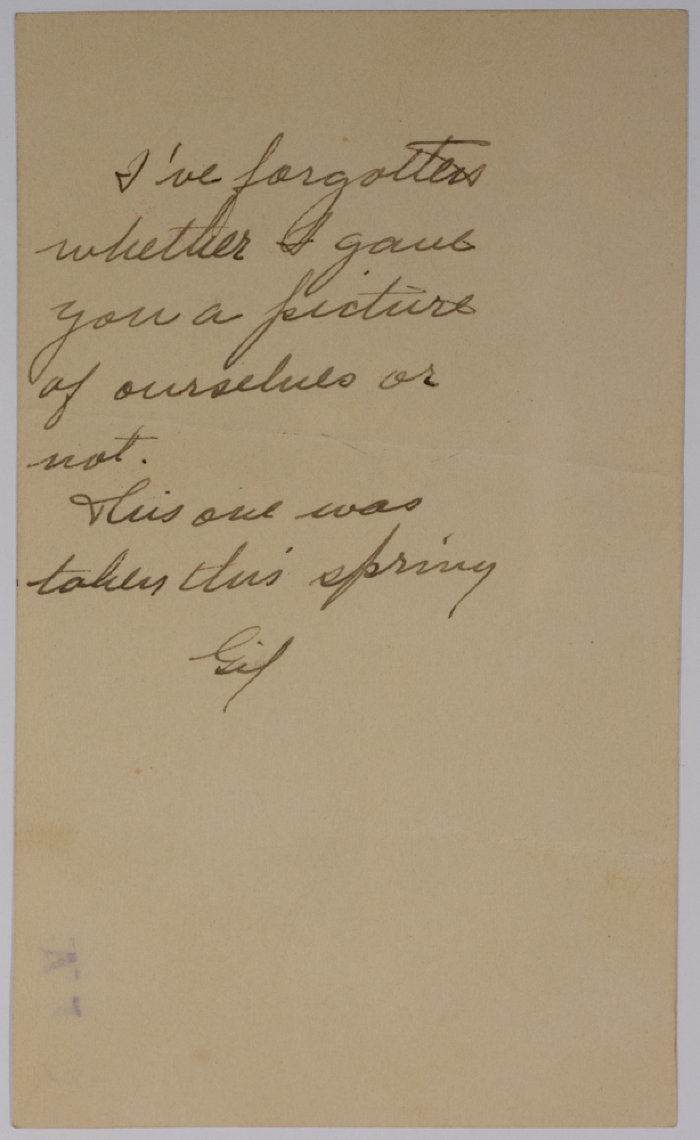 I've forgotten
whether I gave
you a picture
of ourselves or
not.
This one was
taken this spring
Gil